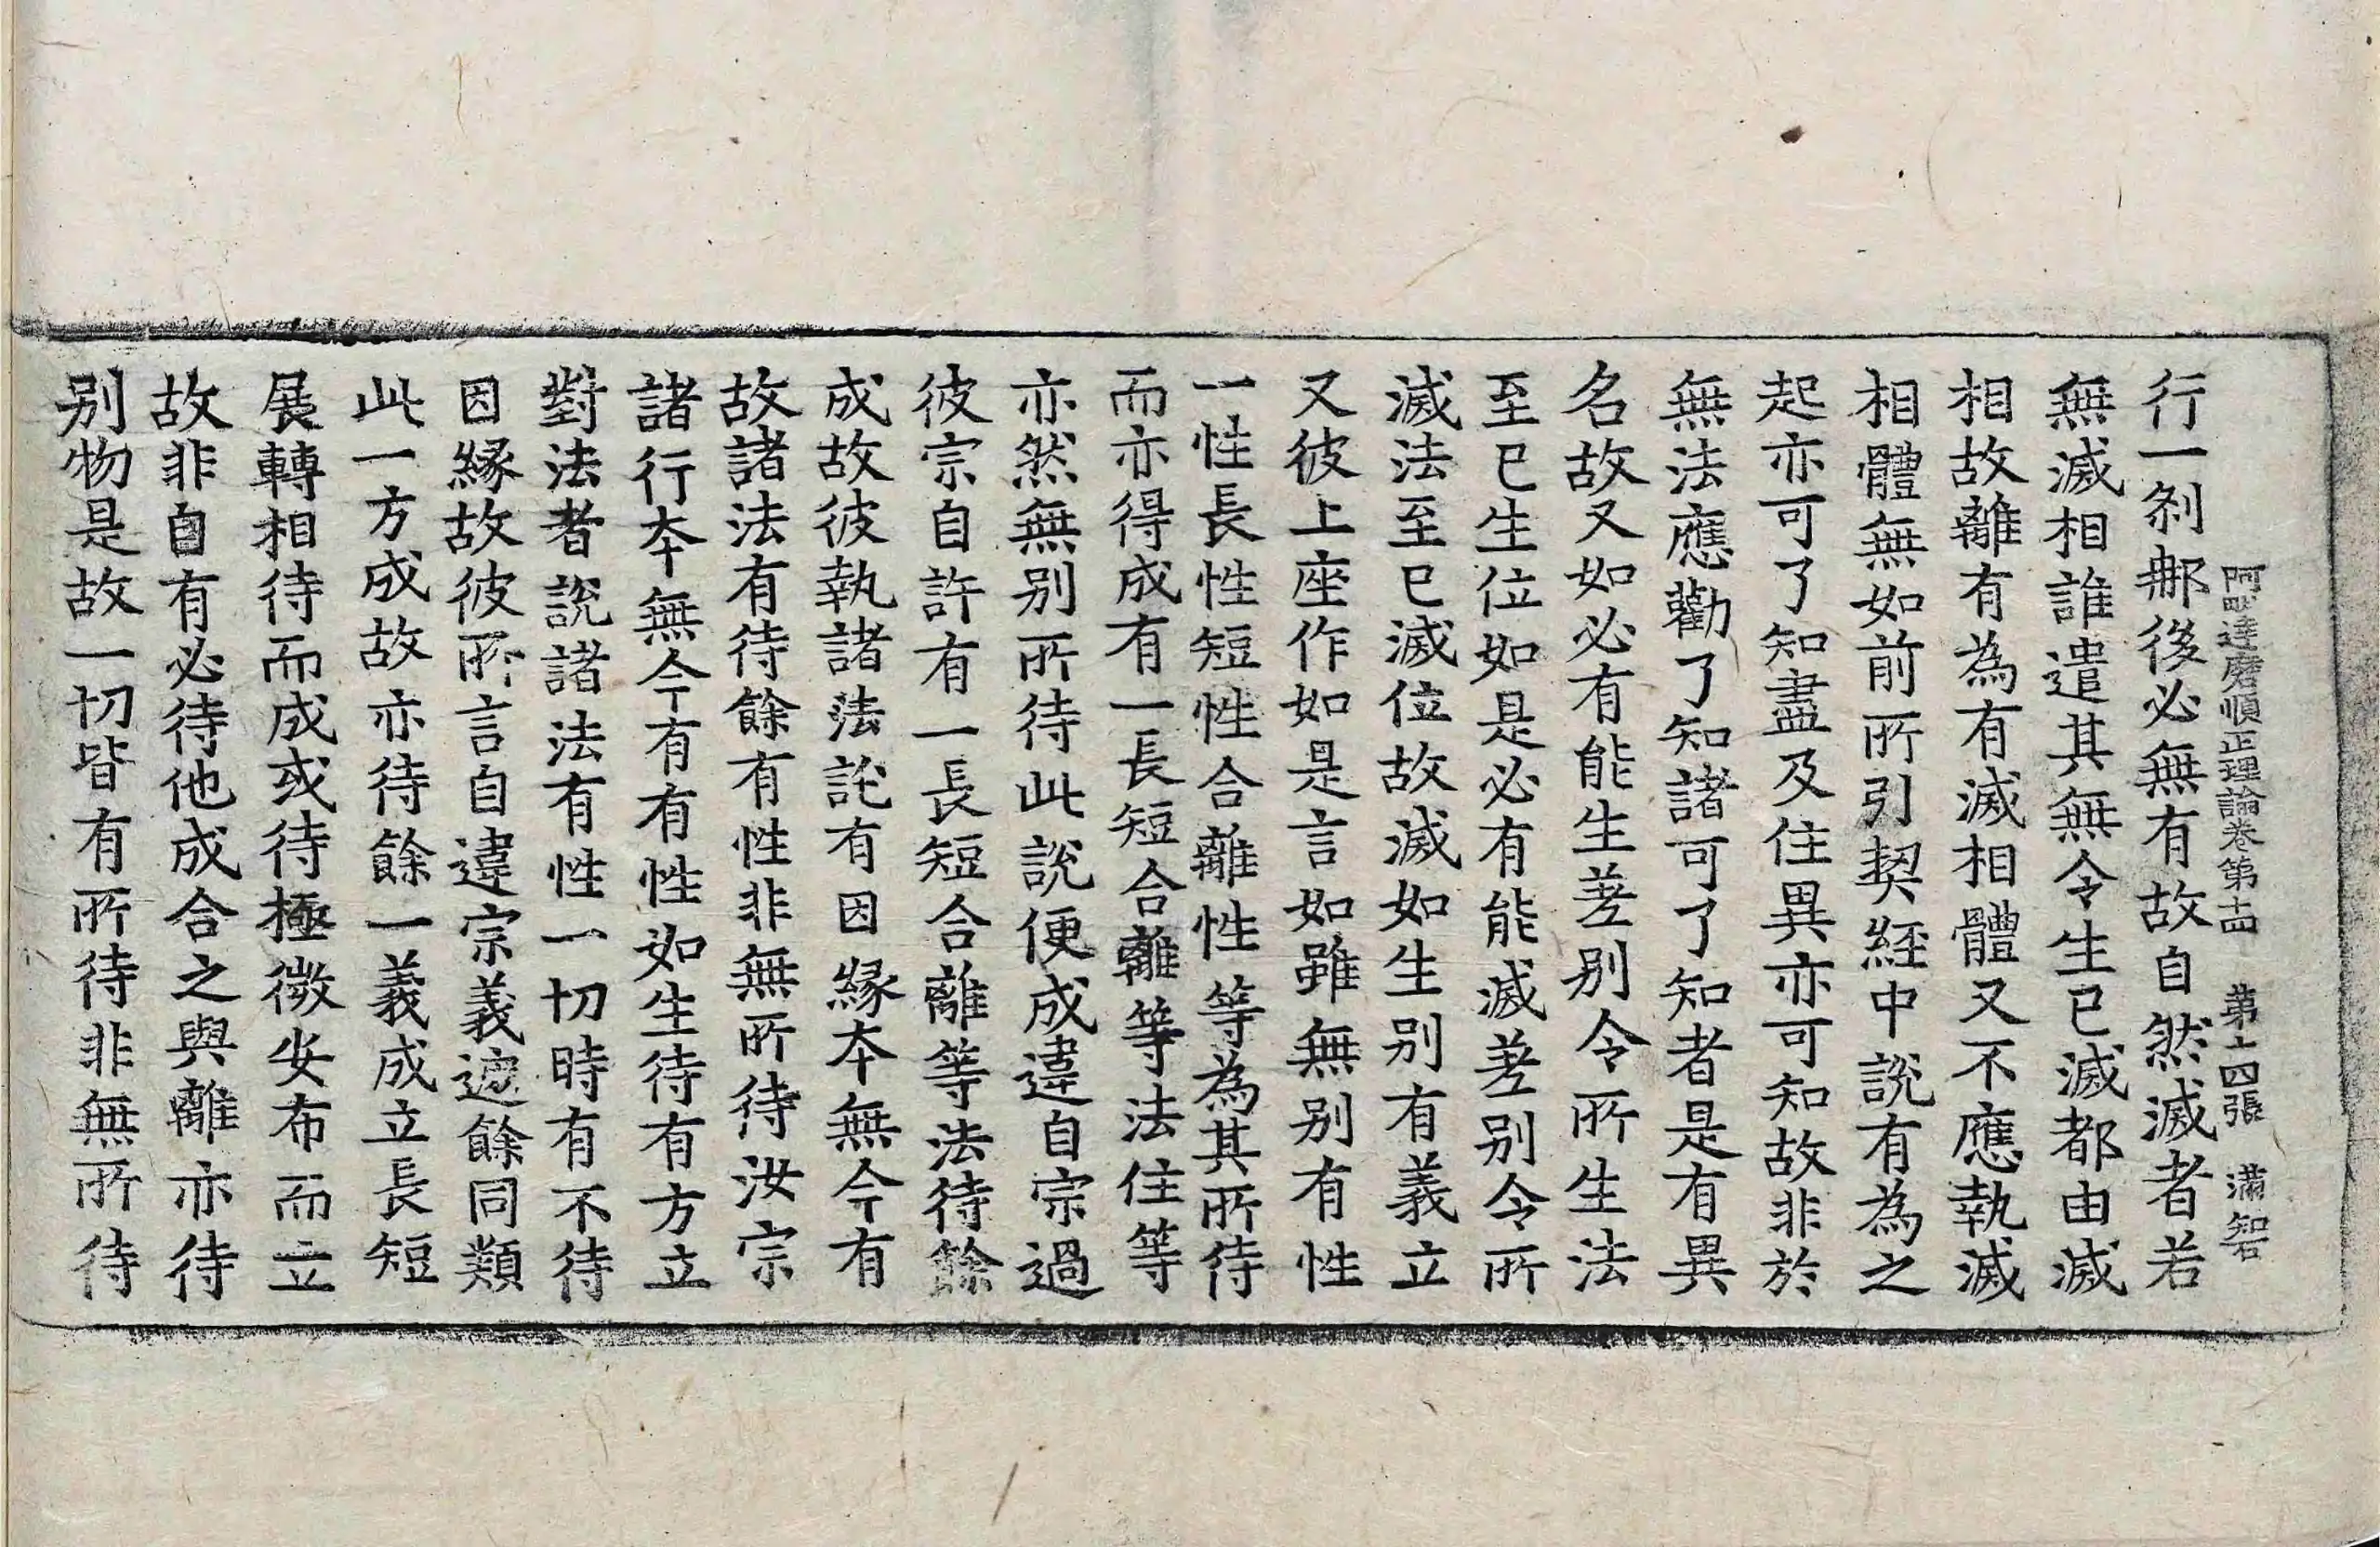 阿毗達磨順正理論卷第十四 第十四張 滿智
行一剎那後必無有故自然滅者若
無滅相誰遣其無令生已滅都由滅
相故離有為有滅相體又不應執滅
相體無如前所引契經中說有為之
起亦可了知盡及住異亦可知故非於
無法應勸了知諸可了知者是有異
名故又如必有能生差別令所生法
至已生位如是必有能滅差別令所
滅法至已滅位故滅如生別有義立
又彼上座作如是言如雖無別有性
一性長性短性合離性等為其所待
而亦得成有一長短合離等法住等
亦然無別所待此說便成違自宗過
彼宗自許有一長短合離等法待餘
成故彼執諸法託有因緣本無今有
故諸法有待餘有性非無所待汝宗
諸行本無今有有性如生待有方立
對法者說諸法有性一切時有不待
因緣故彼所言自違宗義遮餘同類
此一方成故亦待餘一義成立長短
展轉相待而成或待極微安布而立
故非自有必待他成合之與離亦待
別物是故一切皆有所待非無所待